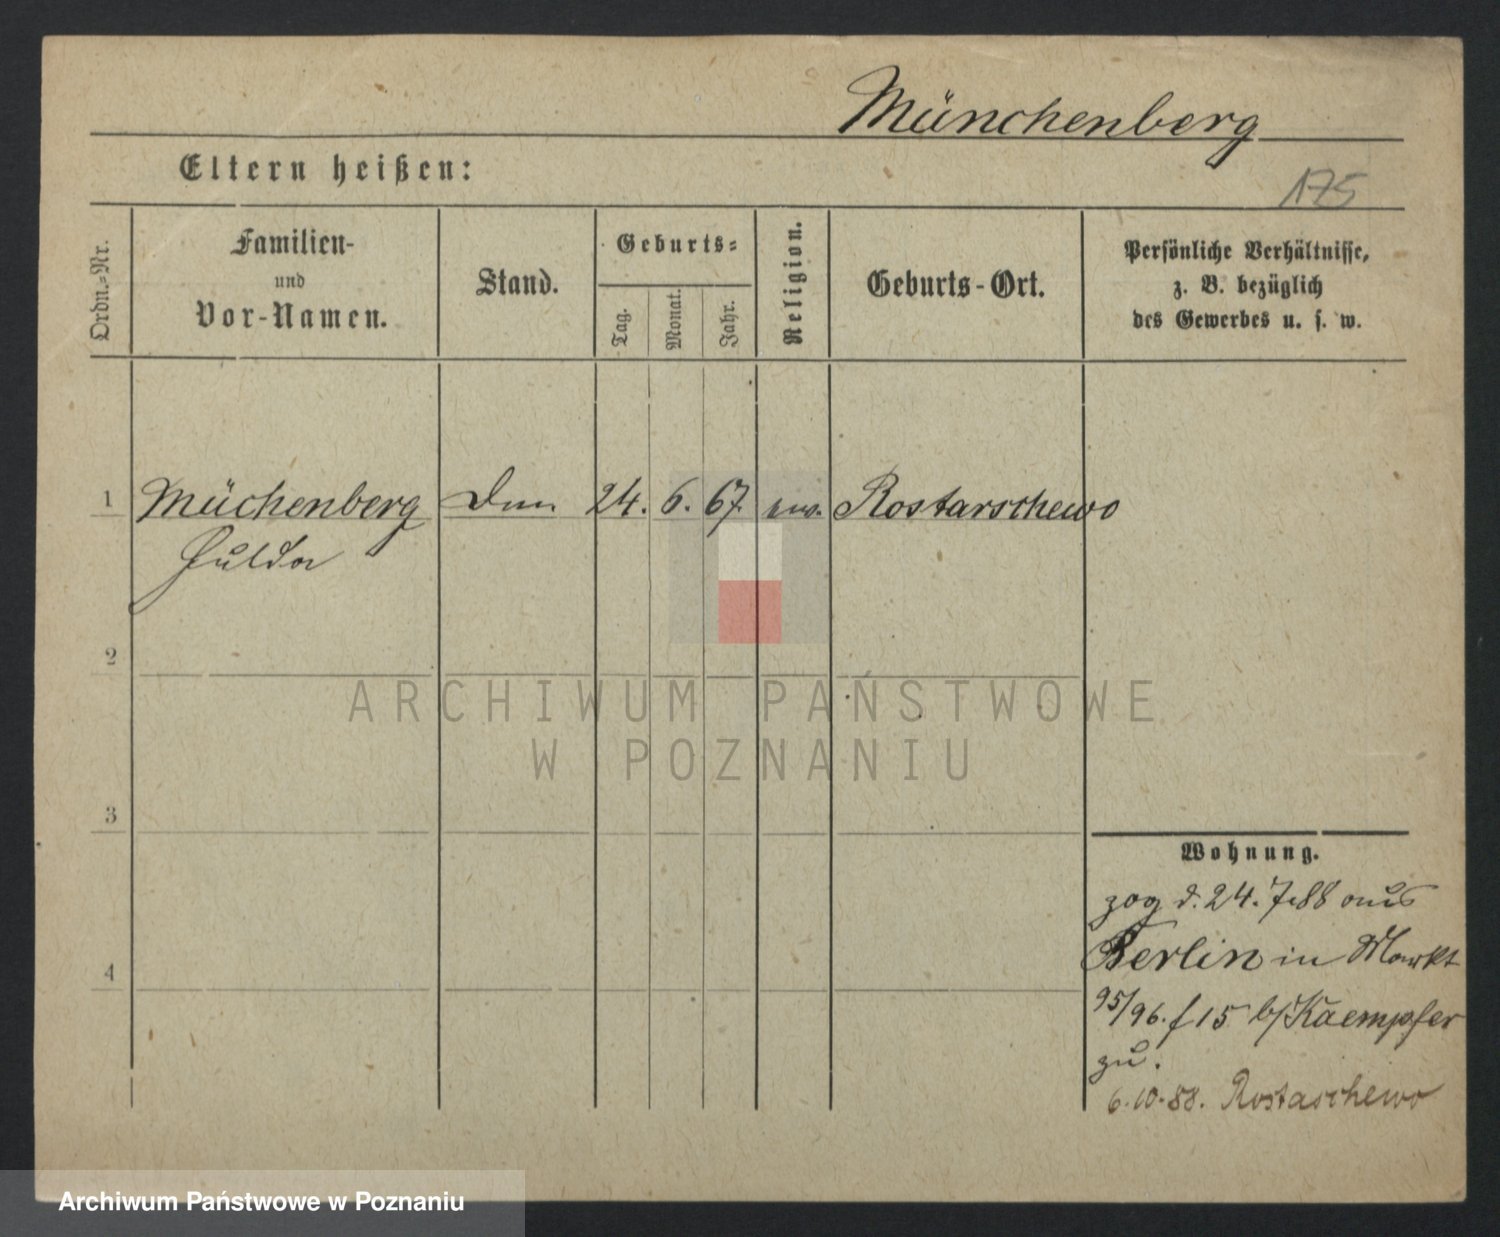 Münchenberg
Eltern heißen:
175
Ordn.-Nr.
Familien-
und
Vor-Namen.
Stand.
Geburts-
Tag.
Monat.
Jahr.
Religion.
Geburts-Ort.
Persönliche Verhältnisse,
z. B. bezüglich
des Gewerbes u. s. w.
1 Müchenberg 24. 6. 67 Rostarschewo
Hulda
2
3
4
ARCHIWUM PAŃSTWOWE
W POZNANIU
Wohnung.
zog d. 24. 7. 88 aus
Berlin in Markt
95/96. f 15 b/ Kaempfer
zu.
6.10.88. Rostaschewo
Archiwum Państwowe w Poznaniu